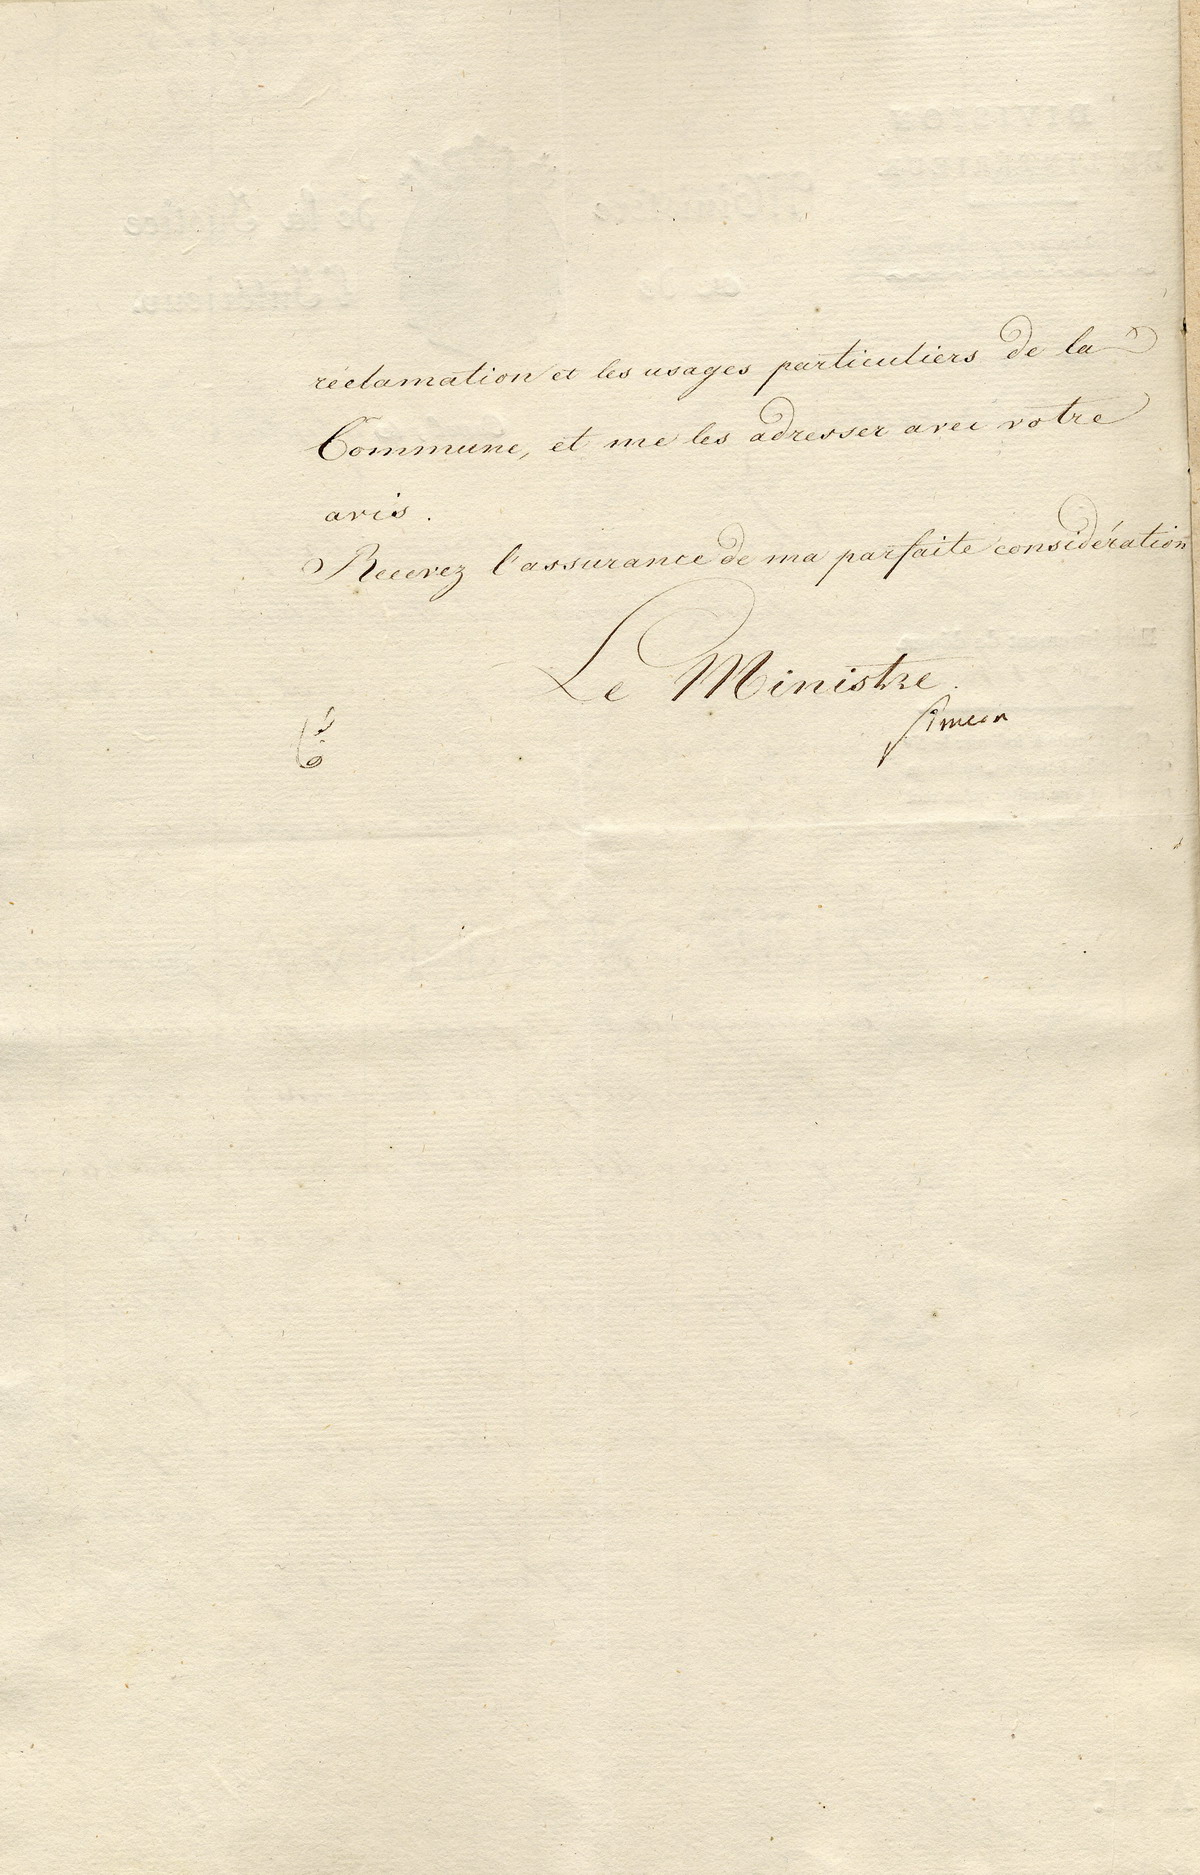 réclamation et les usages particuliers de la
Commune, et me les adresser avec votre
avis.
Recevez l'assurance de ma parfaite considération
Le Ministre.
Simeon